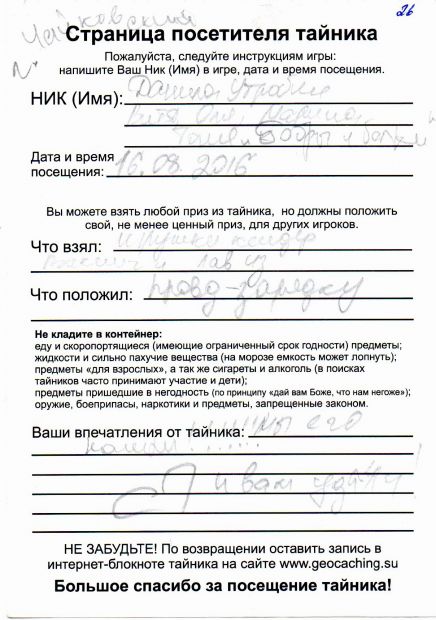 26
Чайковский
Страница посетителя тайника
Пожалуйста, следуйте инструкциям игры:
напишите Ваш Ник (Имя) в игре, дата и время посещения.
НИК (Имя):
Витя Оля, Марина,
Толя, Бобры и
Дата и время
посещения: 16.08.2016
Вы можете взять любой приз из тайника, но должны положить
свой, не менее ценный приз, для других игроков.
Что взял: игрушки киндер
Что положил: провод-зарядку
Не кладите в контейнер:
еду и скоропортящиеся (имеющие ограниченный срок годности) предметы;
жидкости и сильно пахучие вещества (на морозе емкость может лопнуть);
предметы «для взрослых», а так же сигареты и алкоголь (в поисках
тайников часто принимают участие и дети);
предметы пришедшие в негодность (по принципу «дай вам Боже, что нам негоже»);
оружие, боеприпасы, наркотики и предметы, запрещенные законом.
Ваши впечатления от тайника: мы его
нашли!.......
И вам удачи!
НЕ ЗАБУДЬТЕ! По возвращении оставить запись в
интернет-блокноте тайника на сайте www.geocaching.su
Большое спасибо за посещение тайника!